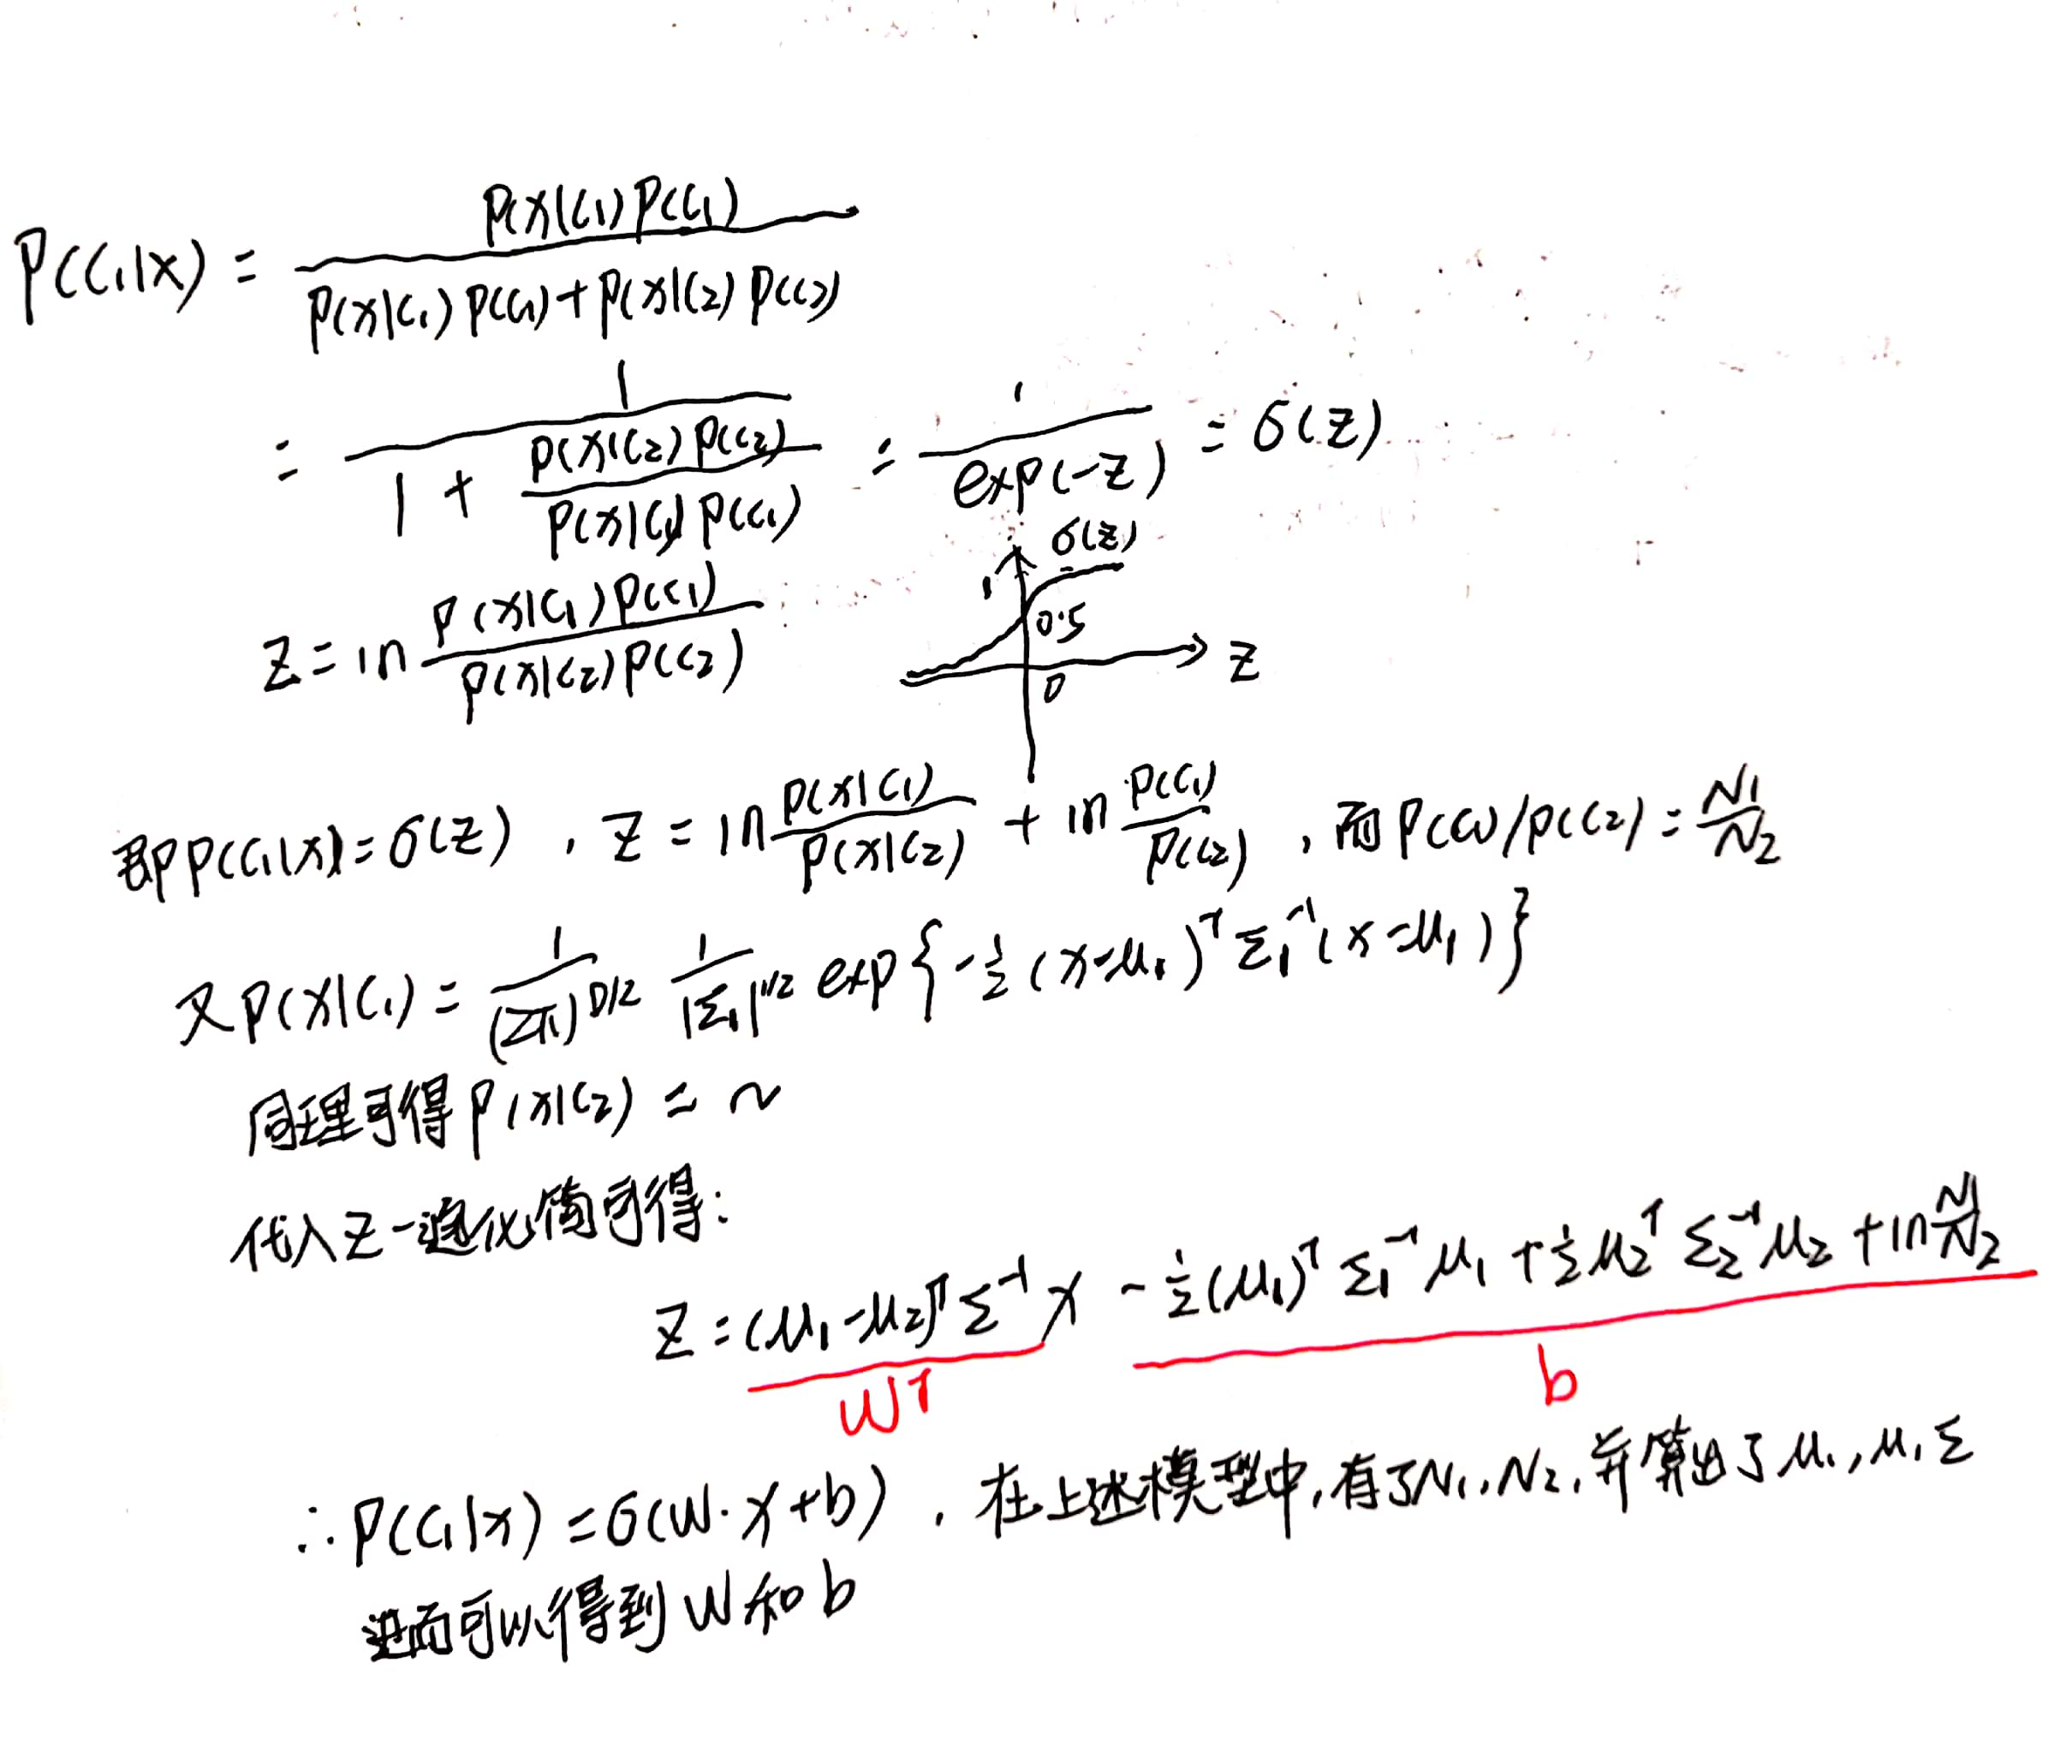 P(C₁|x) = P(x|C₁)P(C₁) / P(x|C₁)P(C₁)+P(x|C₂)P(C₂)
= 1 / 1 + P(x|C₂)P(C₂) / P(x|C₁)P(C₁) = 1 / exp(-z) = σ(z)
z = ln P(x|C₁)P(C₁) / P(x|C₂)P(C₂)
σ(z)
1
0.5
0
z
即P(C₁|x)=σ(z),z = ln P(x|C₁) / P(x|C₂) + ln P(C₁) / P(C₂),而P(C₁)/P(C₂)= N₁/N₂
又P(x|C₁) = 1/(2π)^D/2 1/|Σ₁|^1/2 exp{-½(x-μ₁)ᵀΣ₁⁻¹(x-μ₁)}
同理可得P(x|C₂) = ~
代入z一通化简可得:
z=(μ₁-μ₂)ᵀΣ⁻¹x - ½(μ₁)ᵀΣ₁⁻¹μ₁ + ½μ₂ᵀΣ₂⁻¹μ₂ + ln N₁/N₂
Wᵀ b
∴P(C₁|x) = σ(W·x+b),在上述模型中,有了N₁,N₂,并算出了μ₁,μ₁Σ
进而可以得到W和b